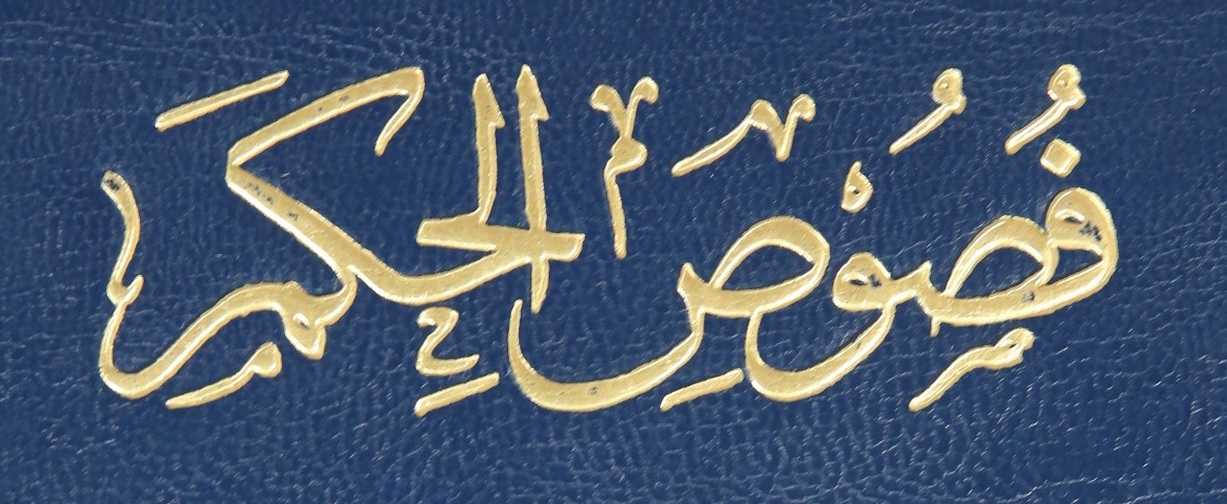 فُصُوصِ الحِكَم